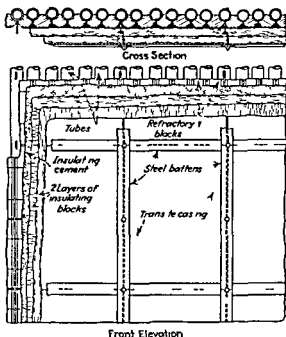 Cross Section
Tubes
Refractory
blocks
Insulating
cement
Steel battens
2 Layers of
insulating
blocks
Trans te casing
Front Elevation